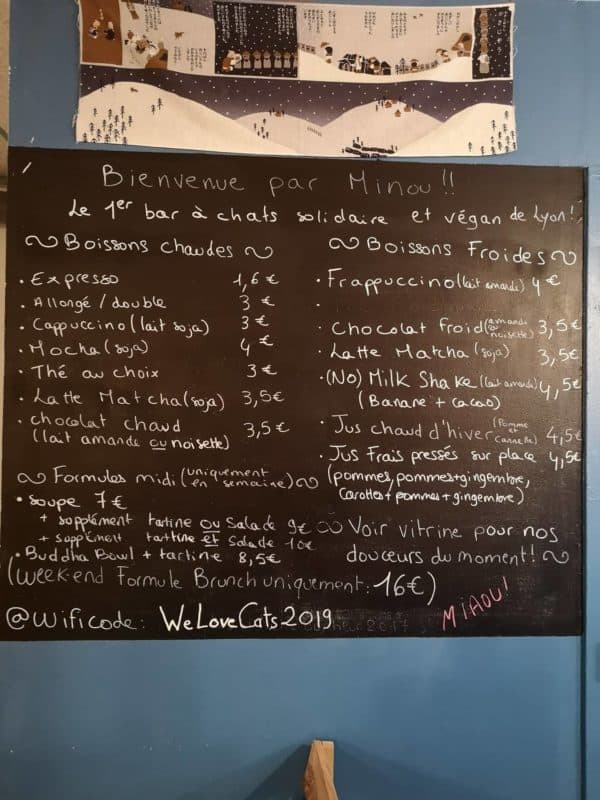 Bienvenue par Minou!!
Le 1er bar à chats solidaire et végan de Lyon!
Boissons Chaudes
• Expresso 1,6 €
• Allongé / double 3 €
• Cappuccino (lait soja) 3 €
• Mocha (soja) 4 €
• Thé au choix 3 €
• Latte Matcha (soja) 3,5 €
• chocolat chaud 3,5 €
(lait amande ou noisette)
Formules midi (uniquement en semaine)
• Soupe 7 €
+ supplément tartine ou salade 9 €
+ supplément tartine et salade 10 €
• Buddha Bowl + tartine 8,5 €
Boissons Froides
• Frappuccino (lait amande) 4 €
•
• Chocolat froid (amande ou noisette) 3,5 €
• Latte Matcha (soja) 3,5 €
• (No) Milk Shake (lait amande) 4,5 €
(Banane + cacao)
• Jus chaud d'hiver (Pomme et Cannelle) 4,5 €
• Jus Frais pressés sur place 4,5 €
(pommes, pommes + gingembre,
Carottes + pommes + gingembre)
Voir vitrine pour nos
douceurs du moment!
(week-end Formule Brunch uniquement: 16 €)
@wificode: WeLoveCats2019
MIAOU!